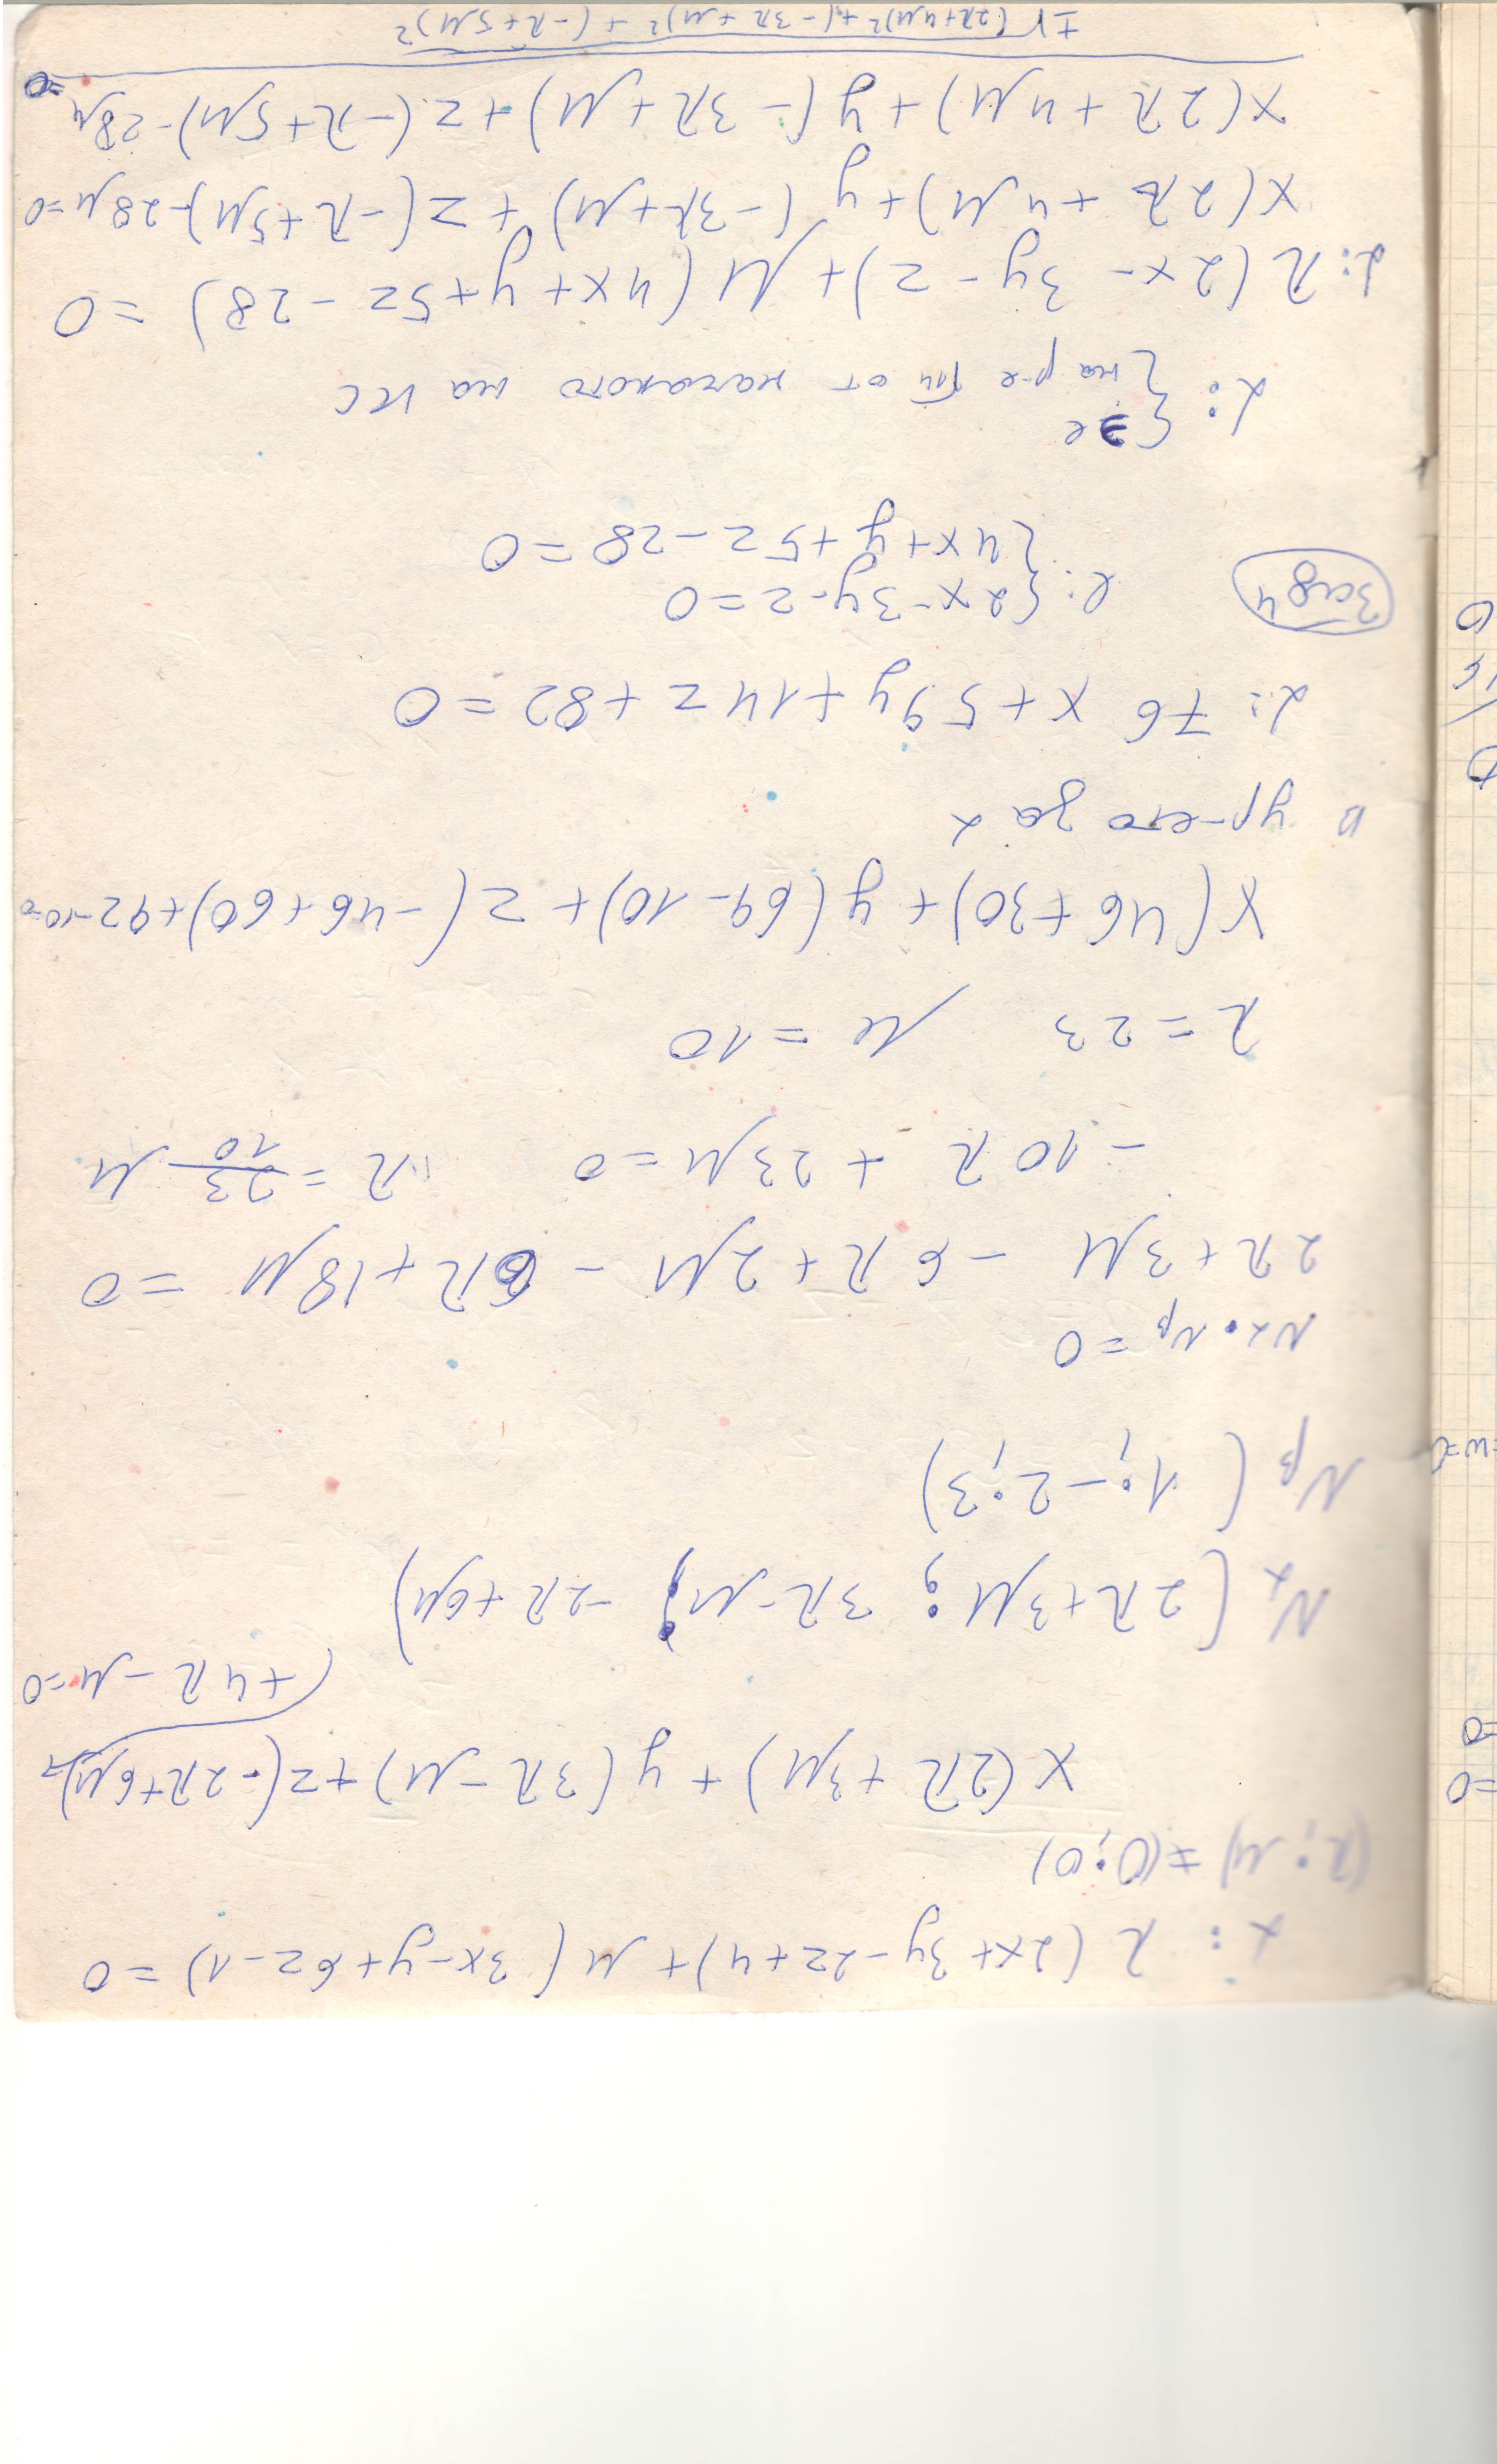 α: λ(2x+3y-2z+4)+μ(3x-y+6z-1)=0
(λ; μ) ≠ (0; 0)
x(2λ+3μ)+y(3λ-μ)+z(-2λ+6μ)+
+4λ-μ=0
Nα(2λ+3μ; 3λ-μ; -2λ+6μ)
Nβ(1; -2; 3)
Nα·Nβ=0
2λ+3μ-6λ+2μ-6λ+18μ=0
-10λ+23μ=0 λ=23/10 μ
λ=23 μ=10
x(46+30)+y(69-10)+z(-46+60)+92-10=0
ур-ето за α
α: 76x+59y+14z+82=0
Зад 4 l: {2x-3y-z=0
{4x+y+5z-28=0
α: {∋ l
{на р-е от началото на КС
α: λ(2x-3y-z)+μ(4x+y+5z-28)=0
x(2λ+4μ)+y(-3λ+μ)+z(-λ+5μ)-28μ=0
x(2λ+4μ)+y(-3λ+μ)+z(-λ+5μ)-28μ=0
±√(2λ+4μ)²+(-3λ+μ)²+(-λ+5μ)²